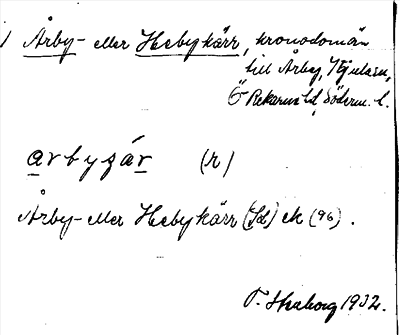 Årby- eller Hebykärr, kronodomän
till Årby, Kjulasn,
Ö Rekarne hd, Söderm. l.
arbyzár (r)
Årby- eller Hebykärr (Jd) ek (96).
1932.